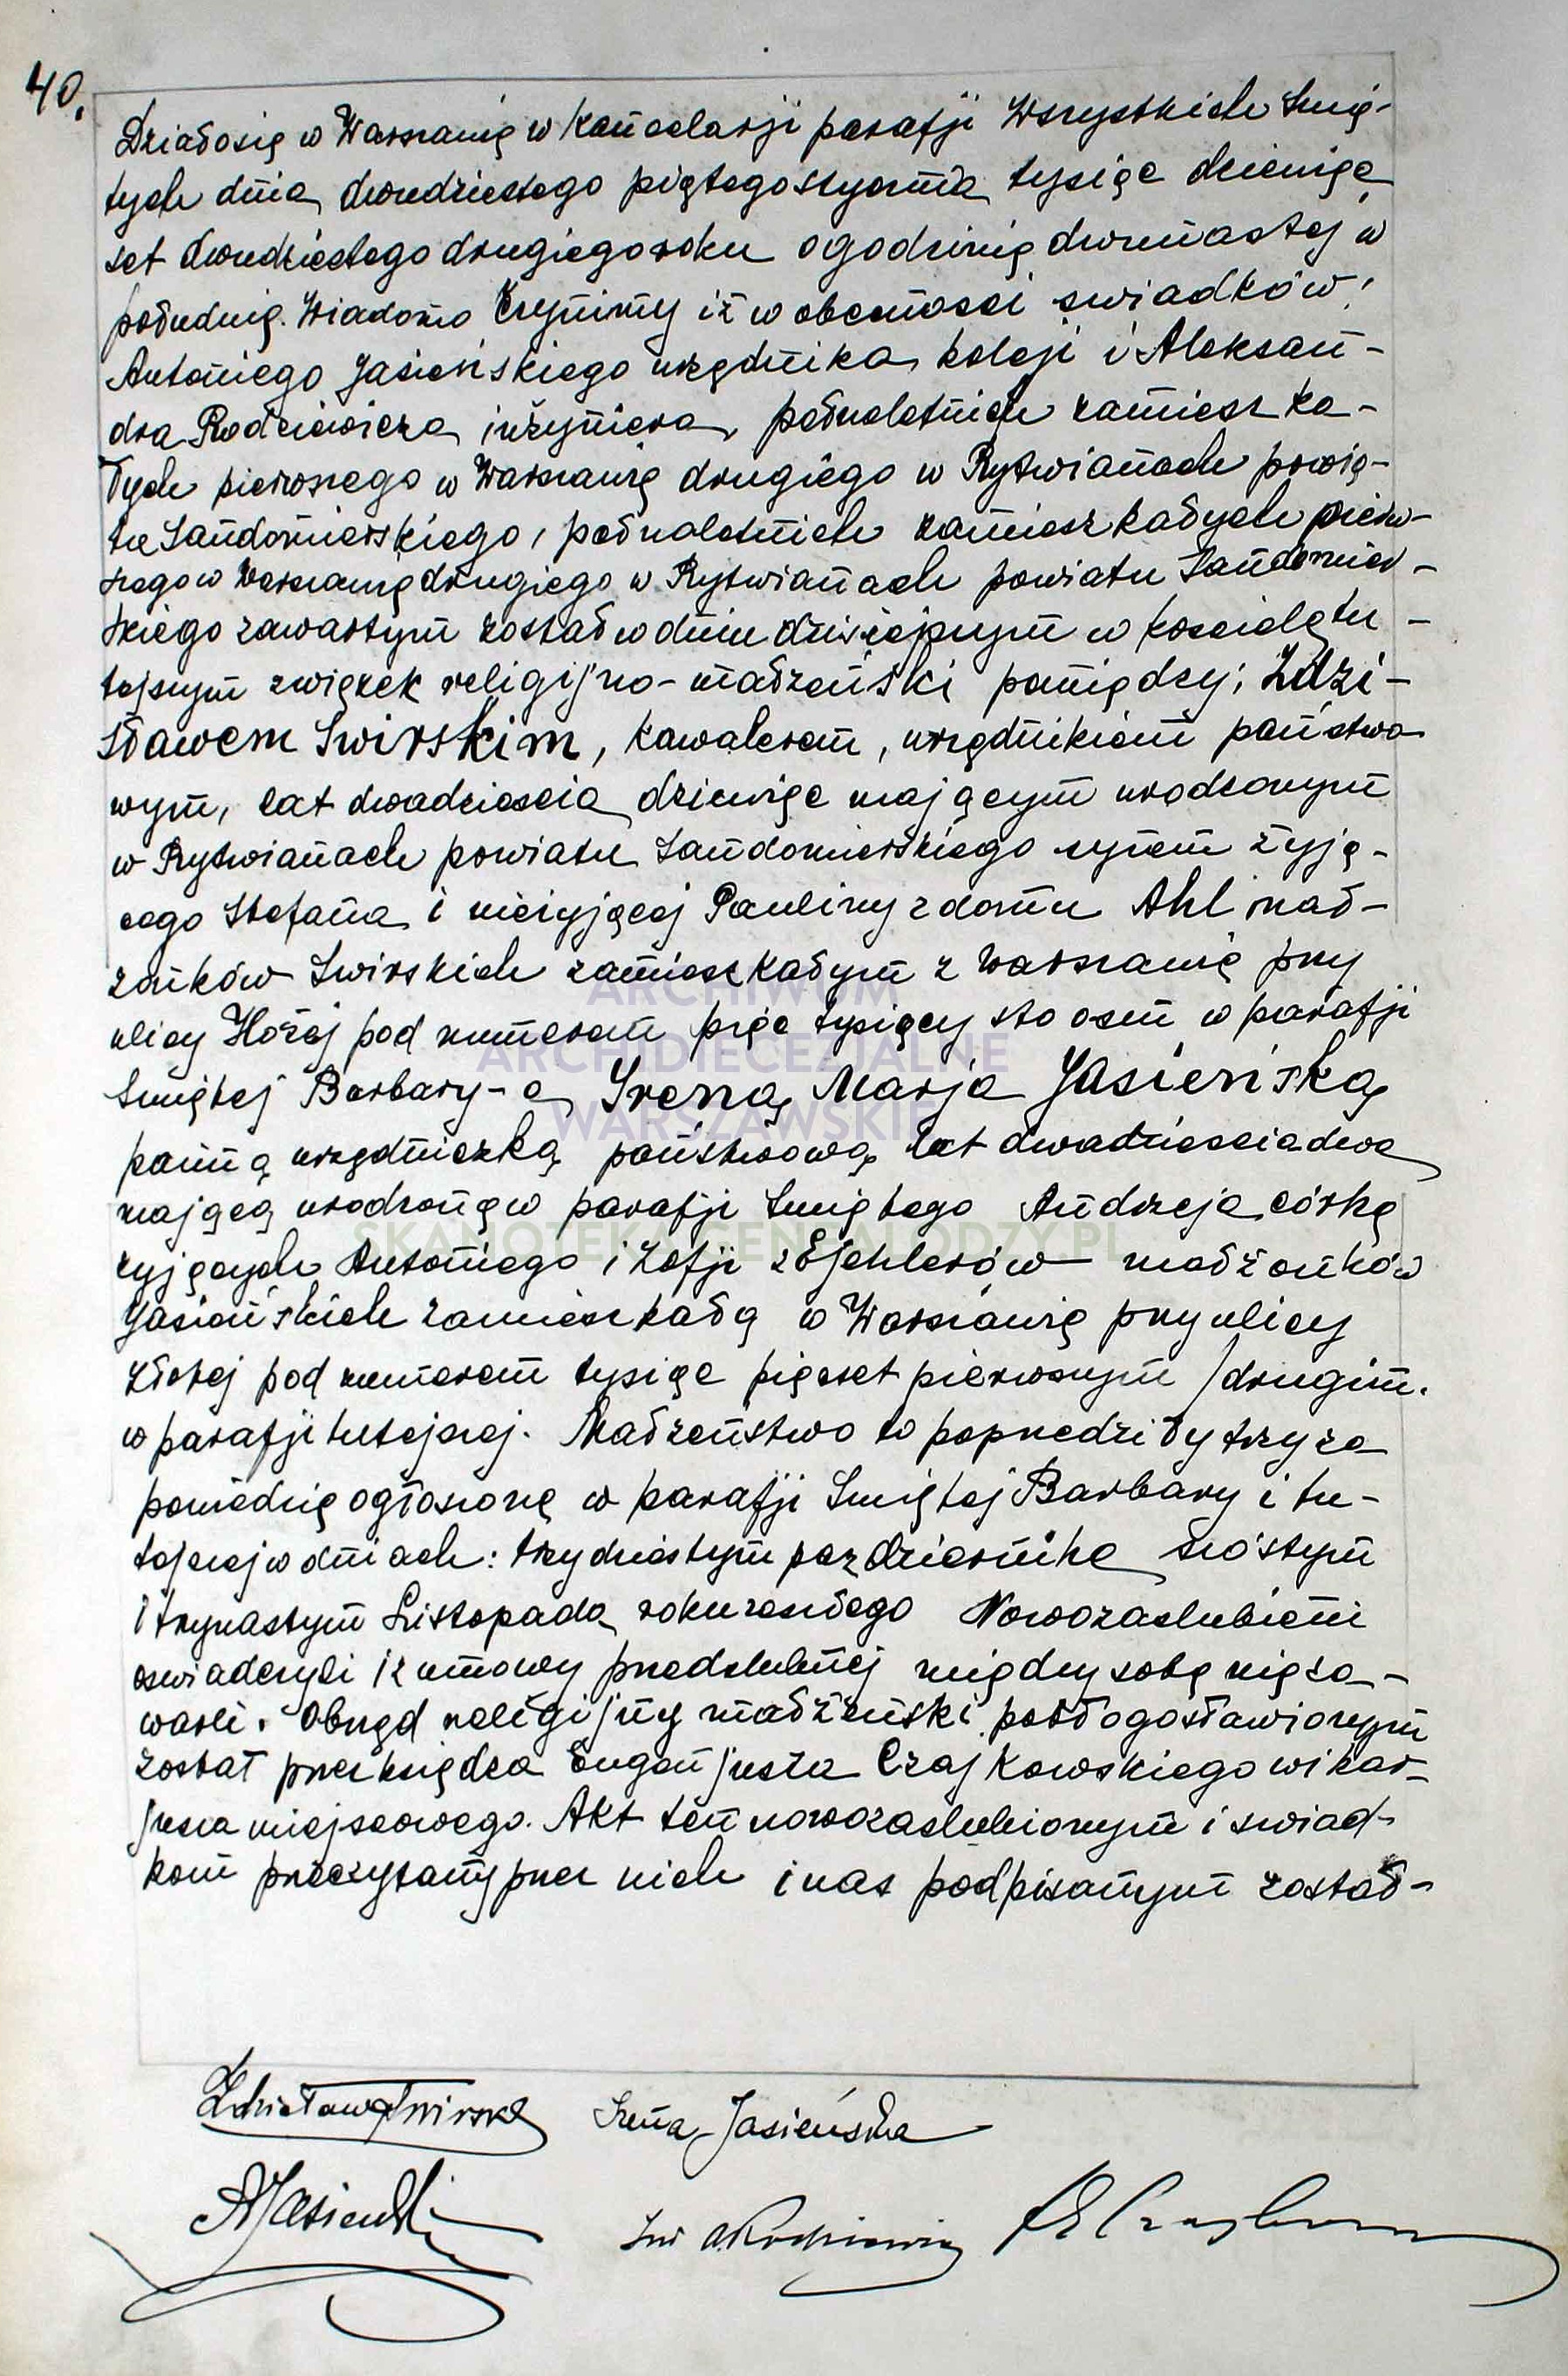 40.
Działosię w Warszawię w Kancelarji parafji Wszystkich Swię-
tych dnia dwudziestego piątego stycznia tysiąc dziewięc
set dwudziestego drugiego roku o godzinię dwunastej w
południę. Wiadomo Czynimy iż w obecnosci swiadków:
Antoniego Jasieńskiego urzędnika koleji i Aleksan-
dra Rodziewicza inżyniera, pełnoletnich zamieszka-
łych pierwszego w Warszawię drugiego w Rytwianach powia-
tu Sandomierskiego, pełnoletnich zamieszkałych pierw-
szego w Warszawię drugiego w Rytwianach powiatu Sandomier-
skiego zawartym został w dniu dzisiejszym w kosciele tu-
tejszym związek religijno-małżeński pomiędzy; Zdzi-
sławem Swirskim, kawalerem, urzędnikiem państwo
wym, lat dwadziescia dziewięc mającym urodzonym
w Rytwianach powiatu Sandomierskiego synem żyją-
cego Stefana i nieżyjącej Pauliny z domu Ahl mał-
żonków Swirskich zamieszkałym z Warszawię przy
ulicy Hożej pod numerem pięc tysięcy sto osm w parafji
Swiętej Barbary - a Ireną Marja Jasieńską
panną urzędniczką państwową lat dwadziesciadwa
mającą urodzoną w parafji Swiętego Andrzeja córką
żyjących Antoniego i Zofji z Ejchlerów małżonków
Jasieńskich zamieszkałą w Warszawię przy ulicy
Złotej pod numerem tysiąc pięcset pierwszym /drugim.
w parafji tutejszej. Małżeństwo to poprzedziły trzy za
powiedzię ogłoszonę w parafji Swiętej Barbary i tu-
tejszej w dniach: trzydziestym pazdziernika szóstym
i trzynastym Listopada roku zeszłego Nowozaslubieni
oswiadczyli iz umowy przedslubnej między sobą nięza-
warli. Obrzęd religijny małżeński pobłogosławionym
został przez księdza Eugenjusza Czajkowskiego wikar-
jusza miejscowego. Akt ten nowozaslubionym i swiad-
kom przeczytany przez nich i nas podpisanym został-
Zdzisław Swirski Irena Jasieńska
AJasieński